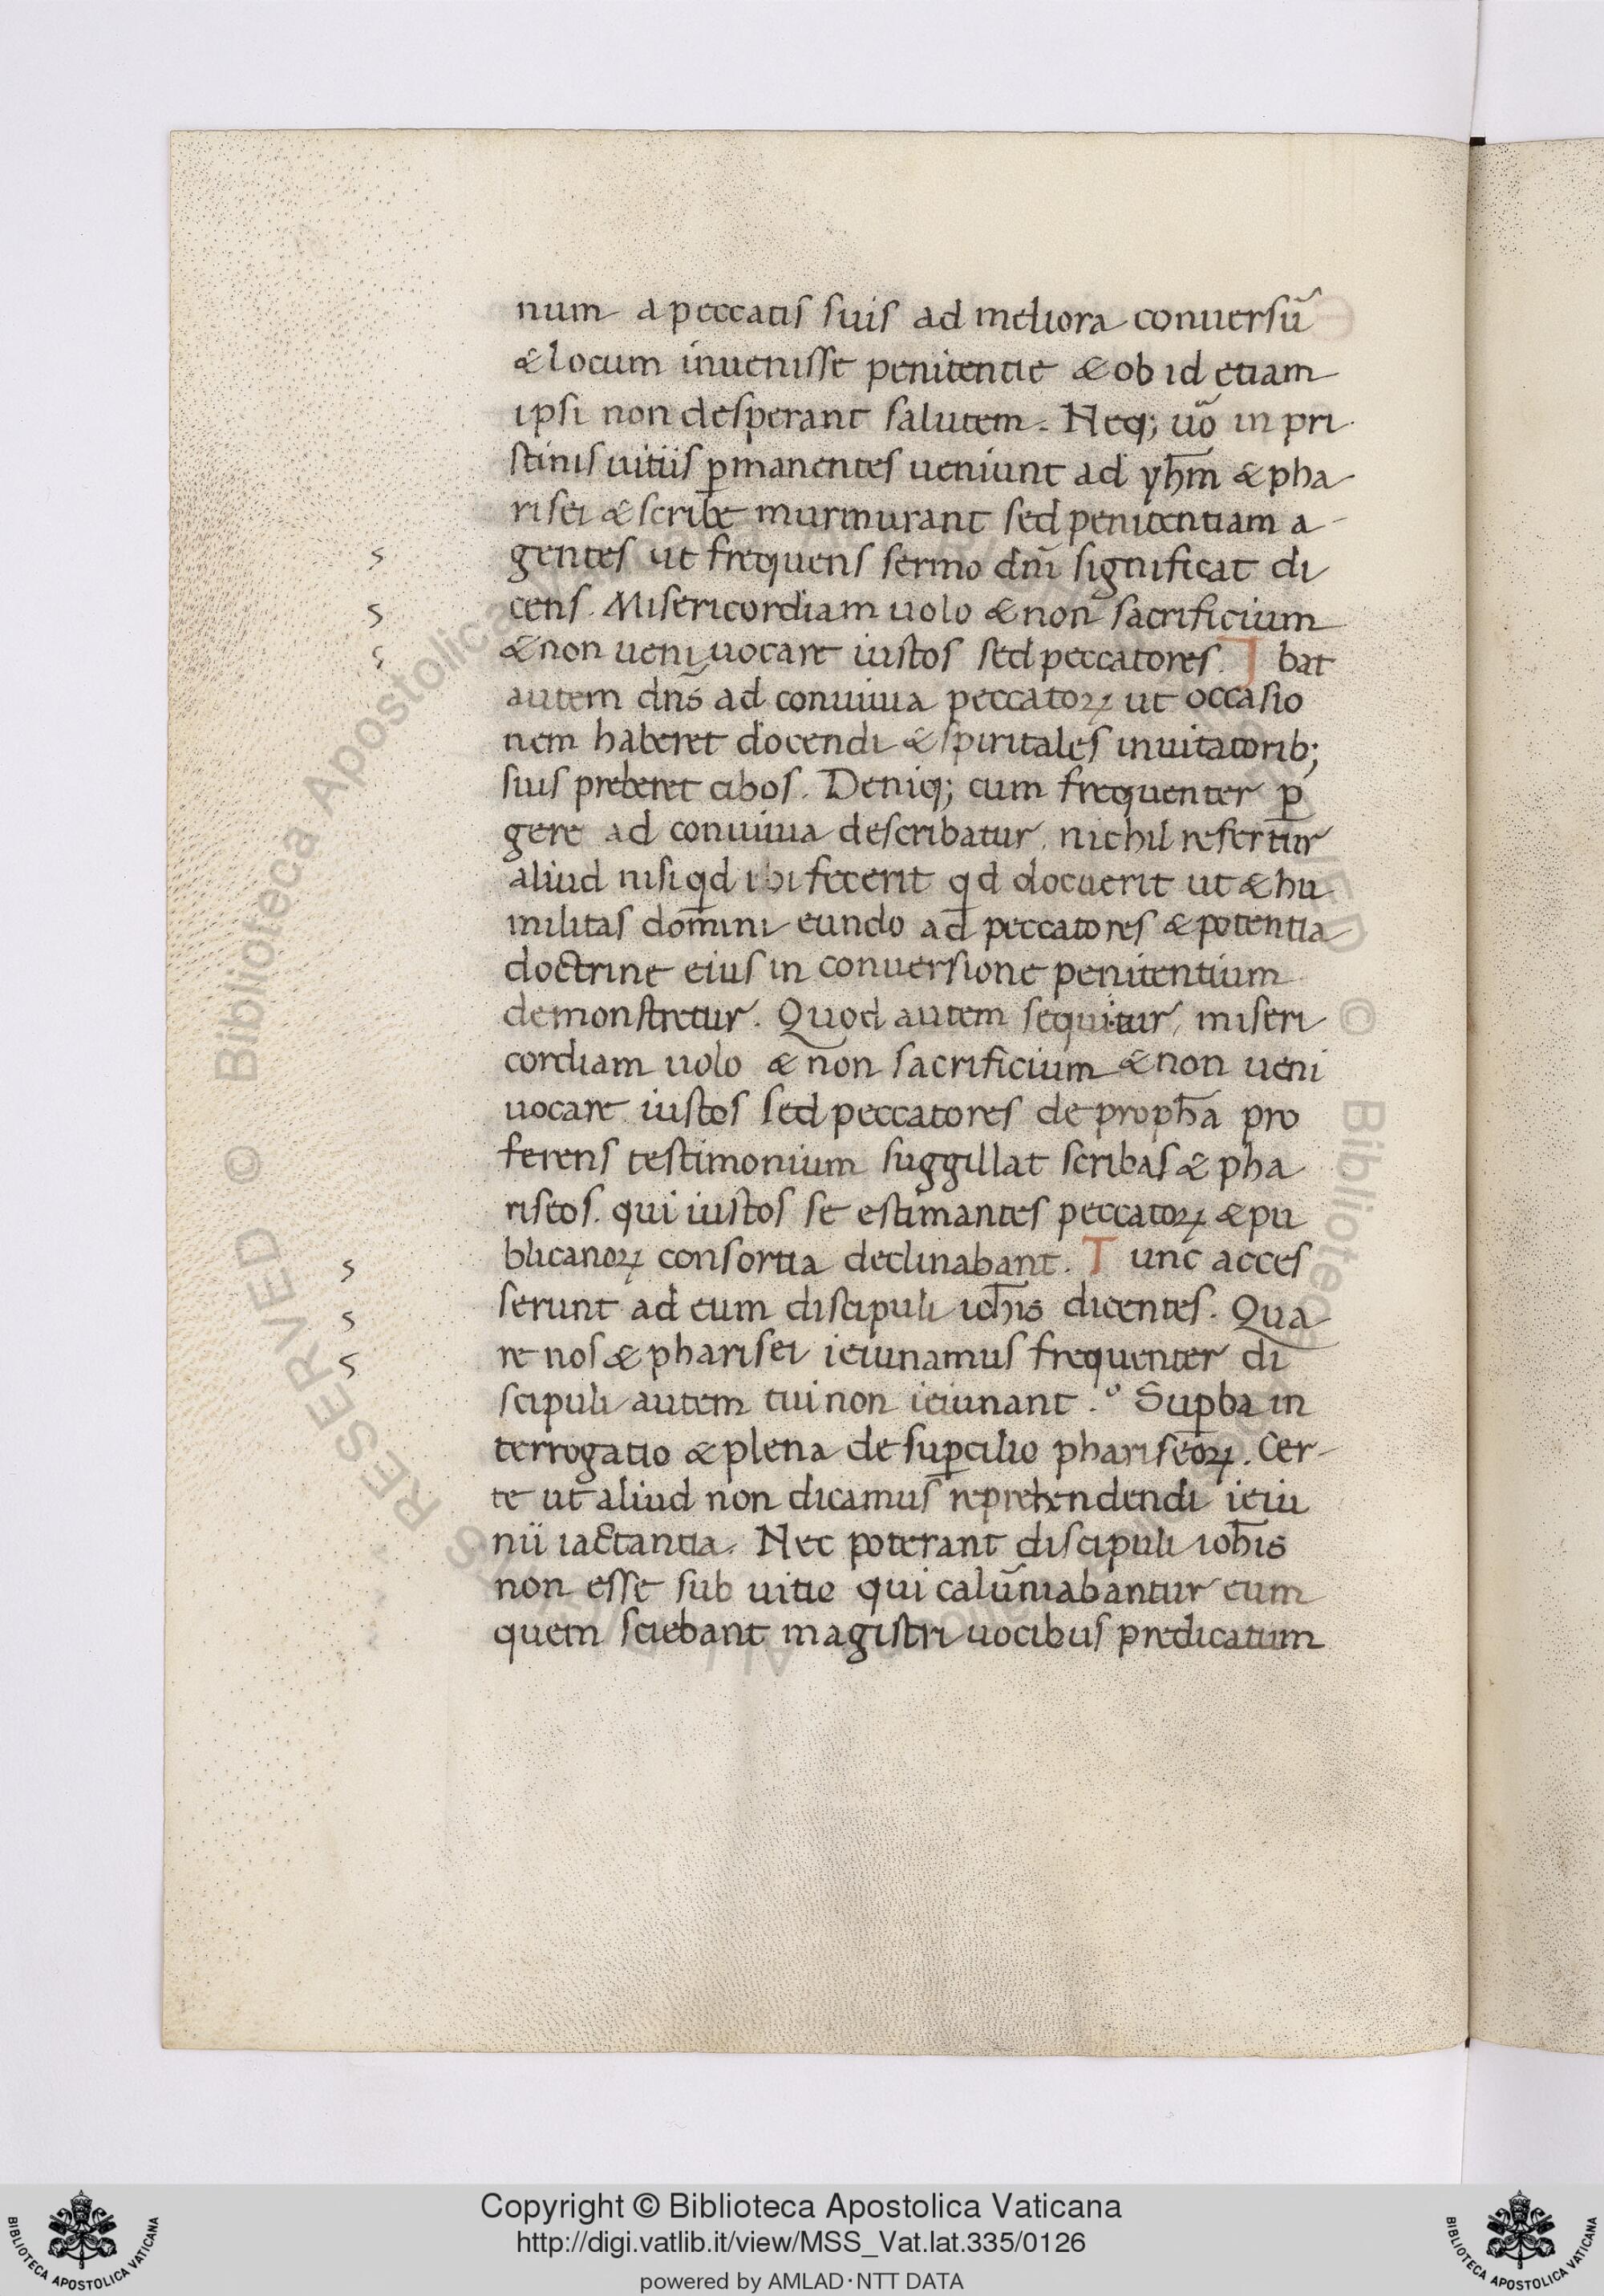 num a peccatis suis ad meliora conuersū
& locum inuenisse penitentie & ob id etiam
ipsi non desperant salutem. Neq; uō in pri
stinis uitiis ꝑmanentes ueniunt ad yh̄m & pha
risei & scribe murmurant sed penitentiam a-
gentes ut frequens sermo dn̄i significat di
cens. Misericordiam uolo & non sacrificium
& non ueni uocare iustos sed peccatores. I bat
autem dn̄s ad conuiuia peccatoꝝ ut occasio
nem haberet docendi & spiritales inuitatorib;
suis preberet cibos. Deniq; cum frequenter ꝑ
gere ad conuiuia describatur, nichil refertur
aliud nisi qd̄ ibi fecerit qd̄ docuerit ut & hu
militas domini eundo ad peccatores & potentia
doctrine eius in conuersione penitentium
demonstretur. Quod autem sequitur, miseri
cordiam uolo & non sacrificium & non ueni
uocare iustos sed peccatores de proph̄a pro
ferens testimonium suggillat scribas & pha
riseos. qui iustos se estimantes peccatoꝝ & pu
blicanoꝝ consortia declinabant. T unc acces
serunt ad eum discipuli ioh̄is dicentes. Qua
re nos & pharisei ieiunamus frequenter di
scipuli autem tui non ieiunant. Suꝑba in
terrogatio & plena de suꝑcilio phariseoꝝ. Cer-
te ut aliud non dicamus reprehendendi ieiu
nii iactantia. Nec poterant discipuli ioh̄is
non esse sub uitio qui calūniabantur eum
quem sciebant magistri uocibus predicatum
Copyright © Biblioteca Apostolica Vaticana
http://digi.vatlib.it/view/MSS_Vat.lat.335/0126
powered by AMLAD·NTT DATA